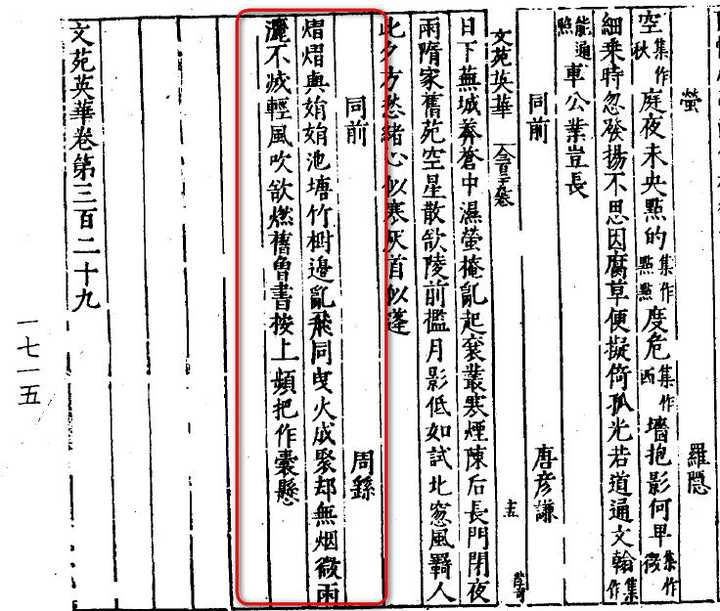 螢 羅隱
空集作秋庭夜未央點的集作點點度危集作西墻抱影何卑集作微
細乘時忽發揚不思因腐草便擬倚孤光若道通文翰集作
能通照車公業豈長
同前 唐彥謙
文苑英華
日下蕪城莽蒼中濕螢撩亂起衰叢寒煙陳后長門閉夜
雨隋家舊苑空星散欲陵前檻月影低如試北窓風羇人
此夕方愁緒心似寒灰首似蓬
同前 周繇
熠熠與娟娟池塘竹樹邊亂飛同曳火成聚却無烟微雨
灑不滅輕風吹欲燃舊曾書桉上頻把作囊懸
文苑英華卷第三百二十九
一七一五